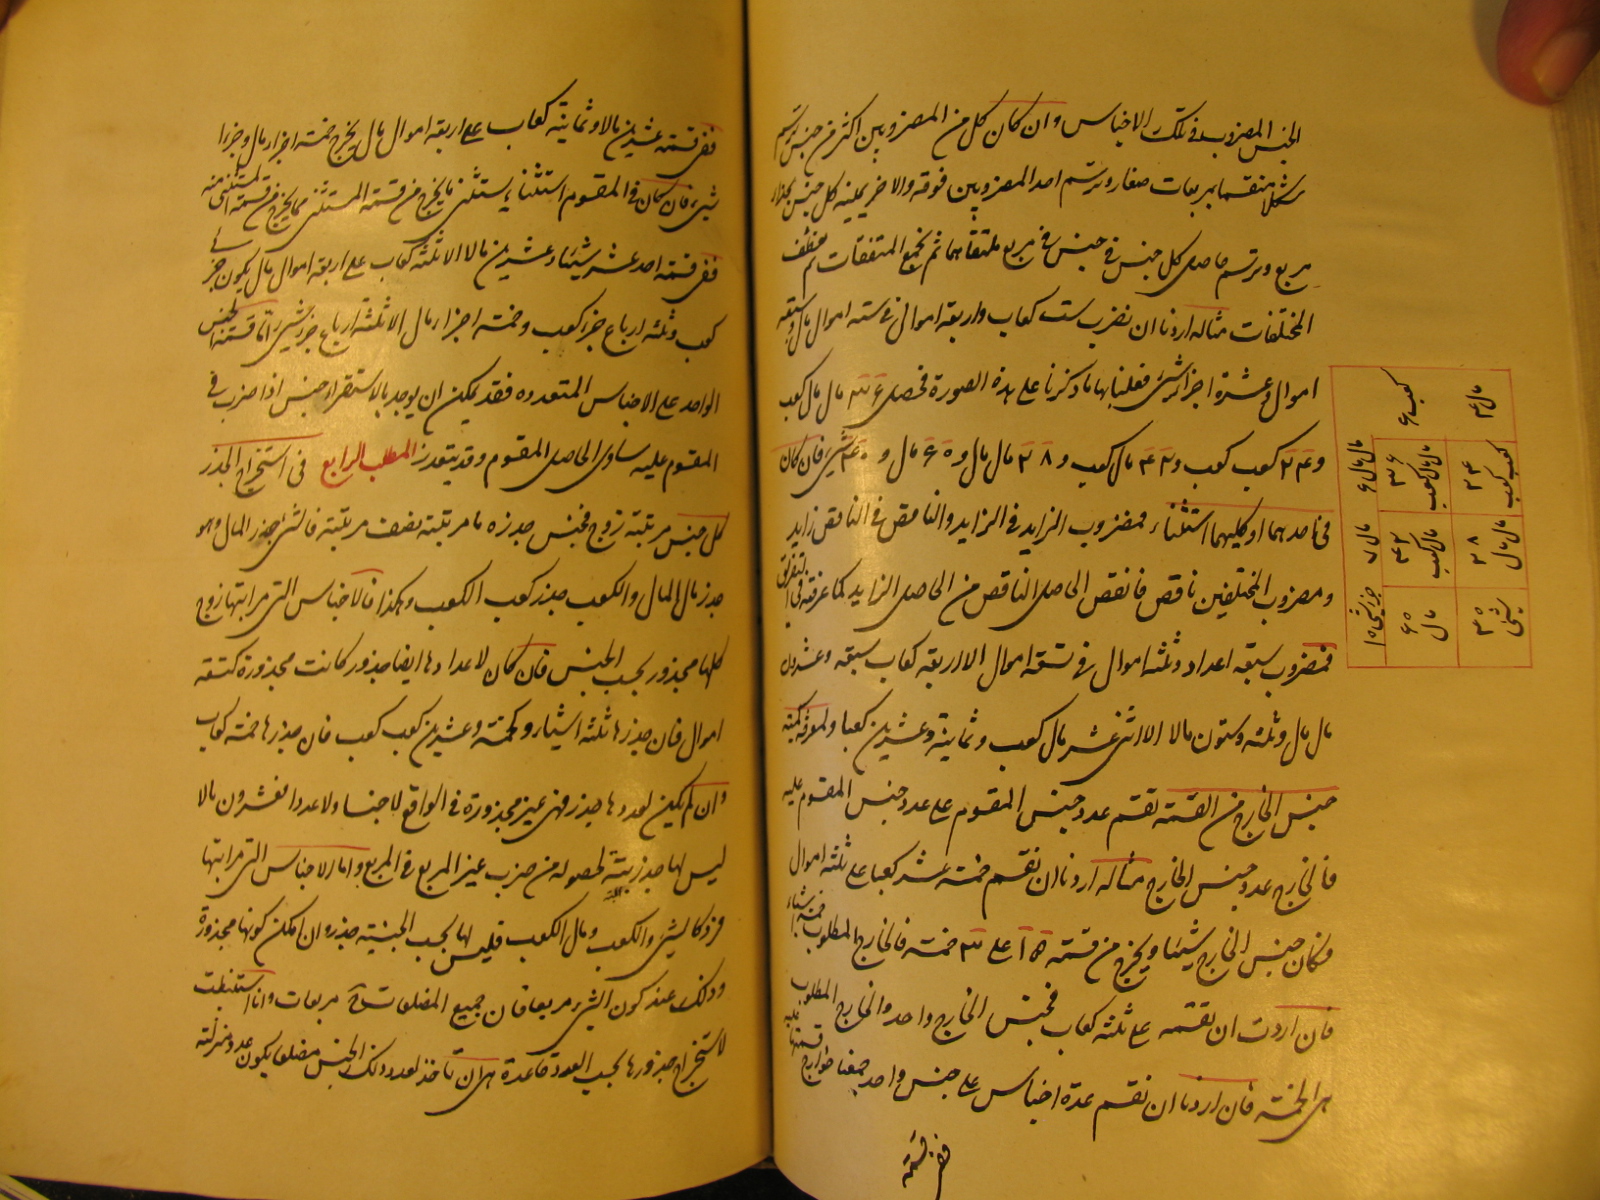 الجنس المضروب فى تلك الاجناس وان كان كل من المضروبين اكثر من جنس نرسم
شكلا منقسما بمربعات صغار ونرسم احد المضروبين فوقه والاخر يمينه كل جنس بحذاء
مربع ونرسم حاصل كل جنس فى جنس فى مربع ملتقاهما ثم نجمع المتفقات ونعطف
المختلفات مثاله اردنا ان نضرب ست كعاب واربعة اموال فى ستة اموال مال وسبعة
اموال وعشرة اجزاء شئ فعلنا بها ما ذكرنا على هذه الصورة فحصل ٣٦ مال مال كعب
و ٢٤ كعب كعب و ٤٢ مال كعب و ٢٨ مال مال و ٦٠ مال و ٤٠ شئ فان كان
فى احدهما او كليهما استثناء فمضروب الزايد فى الزايد والناقص فى الناقص زايد
ومضروب المختلفين ناقص فانقص الحاصل الناقص من الحاصل الزايد كما عرفته فى التفريق
فمضروب سبعة اعداد وثلثة اموال فى تسعة اموال الا اربعة كعاب سبعة وعشرون
مال مال وثلثة وستون مالا الا اثنى عشر مال كعب وثمانية وعشرين كعبا ولمعرفة كمية
جنس الخارج من القسمة نقسم عدد جنس المقسوم على عدد جنس المقسوم عليه
فالخارج عدد جنس الخارج مثاله اردنا ان نقسم خمسة عشر كعبا على ثلثة اموال
فكان جنس الخارج شيئا ويخرج من قسمة ١٥ على ٣ خمسة فالخارج المطلوب خمسة اشياء
فان اردت ان نقسمه على ثلثة كعاب فجنس الخارج واحد والخارج المطلوب
هى الخمسة فان اردنا ان نقسم عدة اجناس على جنس واحد جمعنا خوارج قسمتها عليه
ففى قسمة
مال ٤
كعب ٦
مال مال ٦
مال مال كعب ٣٦
كعب كعب ٢٤
مال ٧
مال كعب ٤٢
مال مال ٢٨
جزء شئ ١٠
مال ٦٠
شئ
ففى قسمة عشرين مالا وثمانية كعاب على اربعة اموال مال يخرج خمسة اجزاء مال وجزءا
شئ فان كان فى المقسوم استثناء يستثنى ما يخرج من قسمة المستثنى مما يخرج من قسمة المستثنى منه
ففى قسمة احد عشر شيئا وعشرين مالا الا ثلثة كعاب على اربعة اموال مال يكون جزء
كعب وثلثة ارباع جزء كعب وخمسة اجزاء مال الا ثلثة ارباع جزء شئ اما قسمة الجنس
الواحد على الاجناس المتعددة فقد يمكن ان يوجد بالاستقراء جنس اذا ضرب فى
المقسوم عليه ساوى الحاصل المقسوم وقد يتعذر المطلب الرابع فى استخراج الجذر
كل جنس مرتبته زوج فجنس جذره ما مرتبته نصف مرتبته فالشئ جذر المال وهو
جذر مال المال والكعب جذر كعب الكعب وهكذا فالاجناس التى مراتبها زوج
كلها مجذور بحسب الجنس فان كان لاعدادها ايضا جذور كانت مجذورة كتسعة
اموال فان جذرها ثلثة اشياء وكخمسة وعشرين كعب كعب فان جذرها خمسة كعاب
وان لم يكن لعددها جذر فهى غير مجذورة فى الواقع لا جنسا ولا عددا فعشرون مالا
ليس لها جذر بتة لحصوله من ضرب غير المربع فى المربع واما الاجناس التى مراتبها
فرد كالشئ والكعب ومال الكعب فليس لها بحسب الجنسية جذر وان امكن كونها مجذورة
وذلك عند كون الشئ مربعا فان جميع المضلعات مربعات وانا استنبطت
لاستخراج جذورها بحسب العدد قاعدة هى ان تأخذ لعدد ذلك الجنس مضلعا يكون عدد منزلته